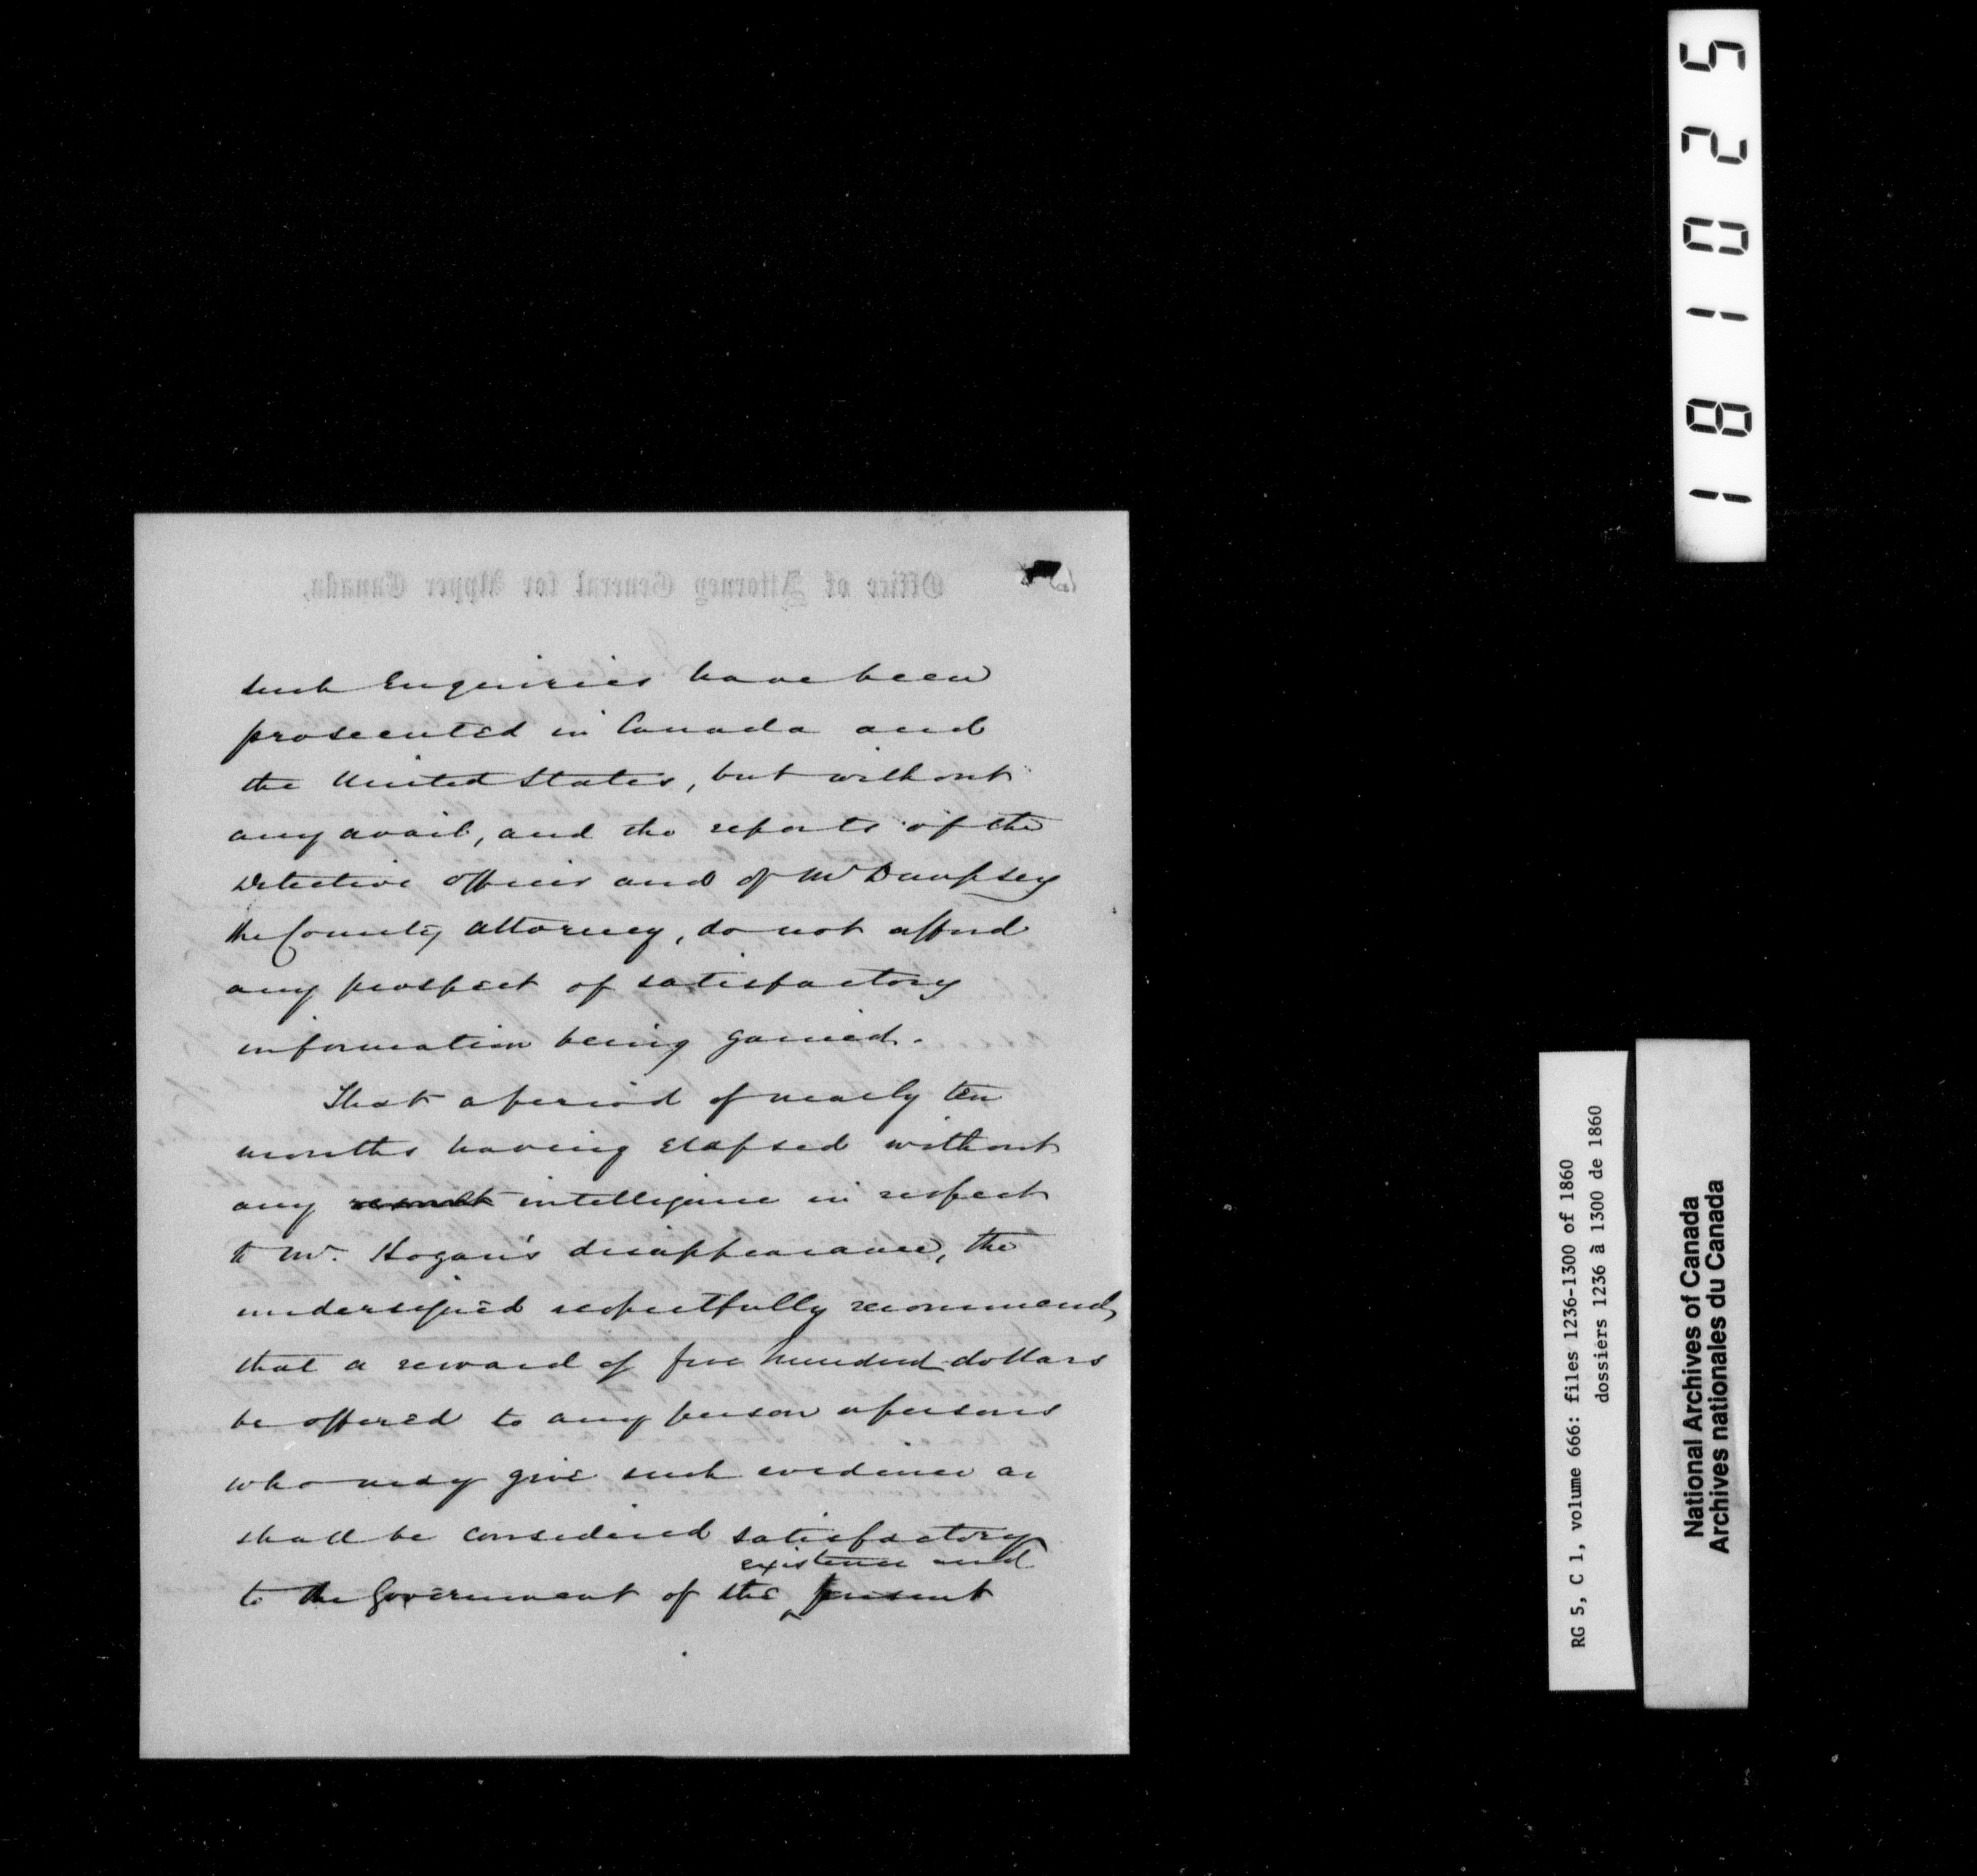 such Enquiries have been
prosecuted in Canada and
the United States, but without
any avail, and the reports of the
Detective officers and of Mr Dempsey
the County Attorney, do not afford
any prospect of satisfactory
information being gained.
That a period of nearly ten
months having elapsed without
any result intelligence in respect
to Mr. Hogan's disappearance, the
undersigned respectfully recommends
that a reward of five hundred dollars
be offered to any person or persons
who may give such evidence as
shall be considered satisfactory
existence and
to the Government of the present
181025
RG 5, C 1, volume 666: files 1236-1300 of 1860
dossiers 1236 à 1300 de 1860
National Archives of Canada
Archives nationales du Canada
Office of Attorney General for Upper Canada,